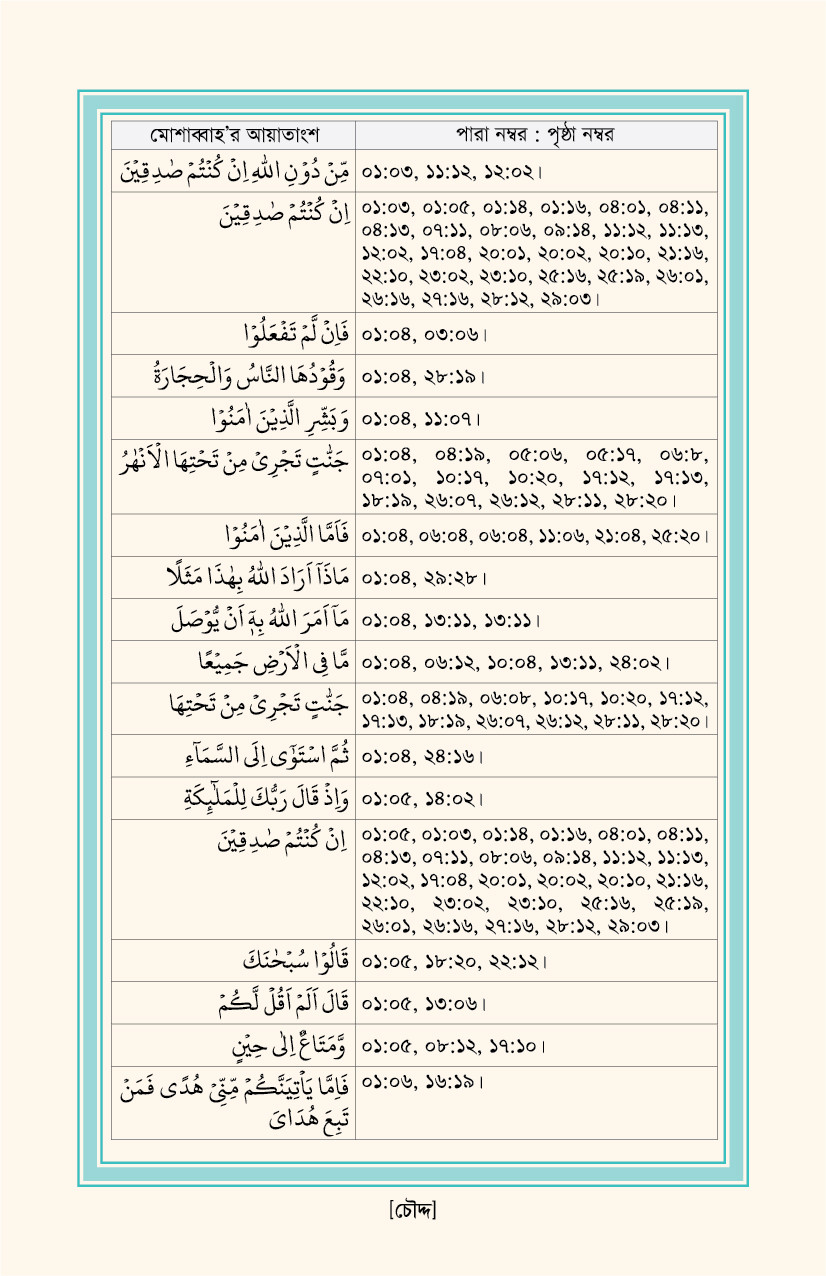 মোশাব্বাহ’র আয়াতাংশ পারা নম্বর : পৃষ্ঠা নম্বর
مِّنْ دُوْنِ اللّٰهِ اِنْ كُنْتُمْ صٰدِقِيْنَ ০১:০৩, ১১:১২, ১২:০২।
اِنْ كُنْتُمْ صٰدِقِيْنَ ০১:০৩, ০১:০৫, ০১:১৪, ০১:১৬, ০৪:০১, ০৪:১১,
০৪:১৩, ০৭:১১, ০৮:০৬, ০৯:১৪, ১১:১২, ১১:১৩,
১২:০২, ১৭:০৪, ২০:০১, ২০:০২, ২০:১০, ২১:১৬,
২২:১০, ২৩:০২, ২৩:১০, ২৫:১৬, ২৫:১৯, ২৬:০১,
২৬:১৬, ২৭:১৬, ২৮:১২, ২৯:০৩।
فَاِنْ لَّمْ تَفْعَلُوْا ০১:০৪, ০৩:০৬।
وَقُوْدُهَا النَّاسُ وَالْحِجَارَةُ ০১:০৪, ২৮:১৯।
وَبَشِّرِ الَّذِيْنَ اٰمَنُوْا ০১:০৪, ১১:০৭।
جَنّٰتٍ تَجْرِيْ مِنْ تَحْتِهَا الْاَنْهٰرُ ০১:০৪, ০৪:১৯, ০৫:০৬, ০৫:১৭, ০৬:৮,
০৭:০১, ১০:১৭, ১০:২০, ১৭:১২, ১৭:১৩,
১৮:১৯, ২৬:০৭, ২৬:১২, ২৮:১১, ২৮:২০।
فَاَمَّا الَّذِيْنَ اٰمَنُوْا ০১:০৪, ০৬:০৪, ০৬:০৪, ১১:০৬, ২১:০৪, ২৫:২০।
مَاذَاۤ اَرَادَ اللّٰهُ بِهٰذَا مَثَلًا ০১:০৪, ২৯:২৮।
مَاۤ اَمَرَ اللّٰهُ بِهٖۤ اَنْ يُّوْصَلَ ০১:০৪, ১৩:১১, ১৩:১১।
مَّا فِي الْاَرْضِ جَمِيْعًا ০১:০৪, ০৬:১২, ১০:০৪, ১৩:১১, ২৪:০২।
جَنّٰتٍ تَجْرِيْ مِنْ تَحْتِهَا ০১:০৪, ০৪:১৯, ০৬:০৮, ১০:১৭, ১০:২০, ১৭:১২,
১৭:১৩, ১৮:১৯, ২৬:০৭, ২৬:১২, ২৮:১১, ২৮:২০।
ثُمَّ اسْتَوٰٓى اِلَى السَّمَآءِ ০১:০৪, ২৪:১৬।
وَاِذْ قَالَ رَبُّكَ لِلْمَلٰٓئِكَةِ ০১:০৫, ১৪:০২।
اِنْ كُنْتُمْ صٰدِقِيْنَ ০১:০৫, ০১:০৩, ০১:১৪, ০১:১৬, ০৪:০১, ০৪:১১,
০৪:১৩, ০৭:১১, ০৮:০৬, ০৯:১৪, ১১:১২, ১১:১৩,
১২:০২, ১৭:০৪, ২০:০১, ২০:০২, ২০:১০, ২১:১৬,
২২:১০, ২৩:০২, ২৩:১০, ২৫:১৬, ২৫:১৯,
২৬:০১, ২৬:১৬, ২৭:১৬, ২৮:১২, ২৯:০৩।
قَالُوْا سُبْحٰنَكَ ০১:০৫, ১৮:২০, ২২:১২।
قَالَ اَلَمْ اَقُلْ لَّكُمْ ০১:০৫, ১৩:০৬।
وَّمَتَاعٌ اِلٰى حِيْنٍ ০১:০৫, ০৮:১২, ১৭:১০।
فَاِمَّا يَاْتِيَنَّكُمْ مِّنِّيْ هُدًى فَمَنْ ০১:০৬, ১৬:১৯।
تَبِعَ هُدَايَ
[চৌদ্দ]